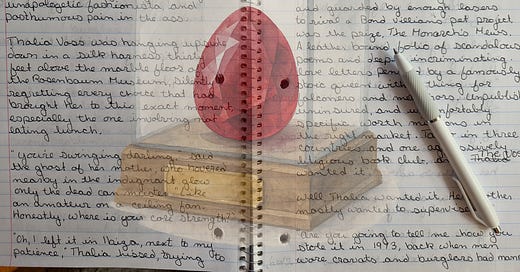 unapologetic fashionista, and
posthumous pain in the ass.
Thalia Voss was hanging upside
down in a silk harness thirty
feet above the marble floors of
the Rosenbaum Museum, silently
regretting every choice that had
brought her to this exact moment,
especially the one involving not
eating lunch.
"You're swinging darling," said
the ghost of her mother, who hovered
nearby in the indignant glow
only the dead can muster. "Like
an amateur on a ceiling fan.
Honestly, where is your core strength?"
"Oh, I left it in Ibiza, next to my
patience," Thalia hissed, trying to
and guarded by enough lasers
to rival a Bond villain's pet project
was the prize, The Monarch's Muse.
A leather bound folio of scandalous
poems and deeply incriminating
love letters penned by a famously
queen worth
falconers and
worth millions on
the right market. in three
and one aggressively
religious book club,
wanted it.
Well Thalia wanted it. Her mother
mostly wanted to supervise.
"Are you going to tell me how you
stole it in 1973, back when men
wore corsets and burglars had manners